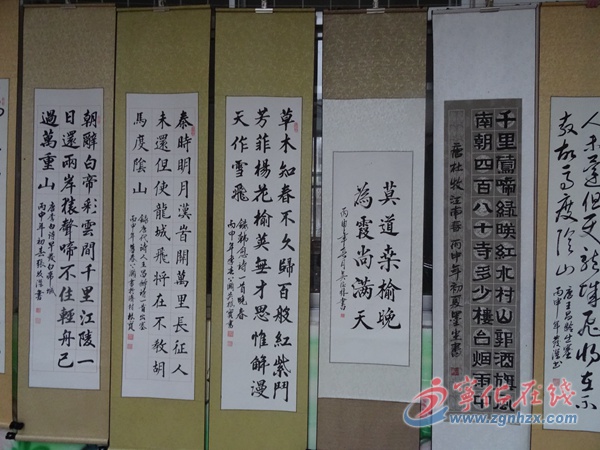 朝辭白帝彩雲間千里江陵一
日還兩岸猿聲啼不住輕舟已
過萬重山
唐李白詩早發白帝城
丙申年初夏張書
秦時明月漢時關萬里長征人
未還但使龍城飛將在不教胡
馬度陰山
錄唐代詩人王昌齡詩一首出塞
丙申年季春
草木知春不久歸百般紅紫鬥
芳菲楊花榆莢無才思惟解漫
天作雪飛
錄韓愈詩一首晚春
丙申年季春書
莫道桑榆晚
為霞尚滿天
丙申年書
千里鶯啼綠映紅水村山郭酒旗風
南朝四百八十寺多少樓台烟雨中
唐杜牧江南春丙申年初夏書
人未還但使龍城飛將在不
教胡馬度陰山
唐王昌齡出塞
丙申年書
宁化在线
www.zgnhzx.com